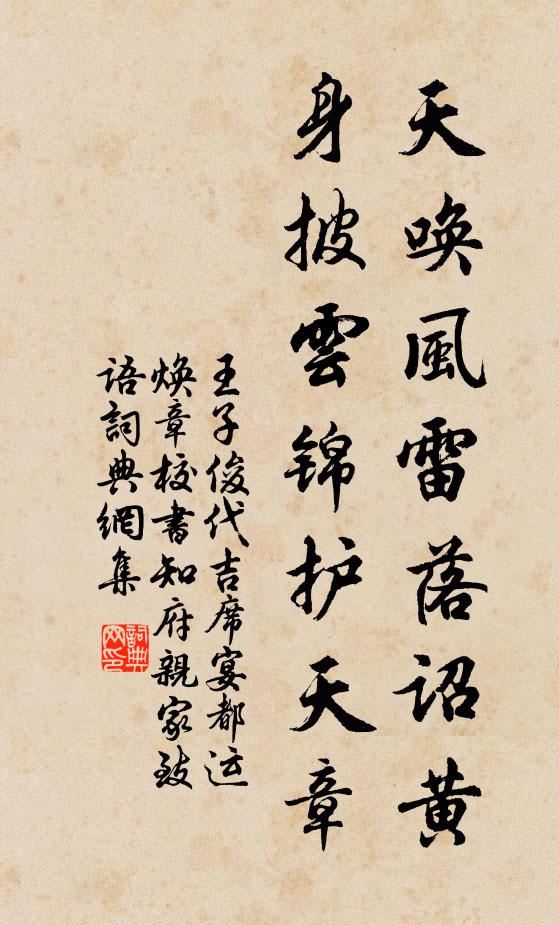 天唤風雷落诏黄
身披雲锦护天章
王子俊代吉席宴都运
焕章校書知府親家致
语詞典網集
詞典网印